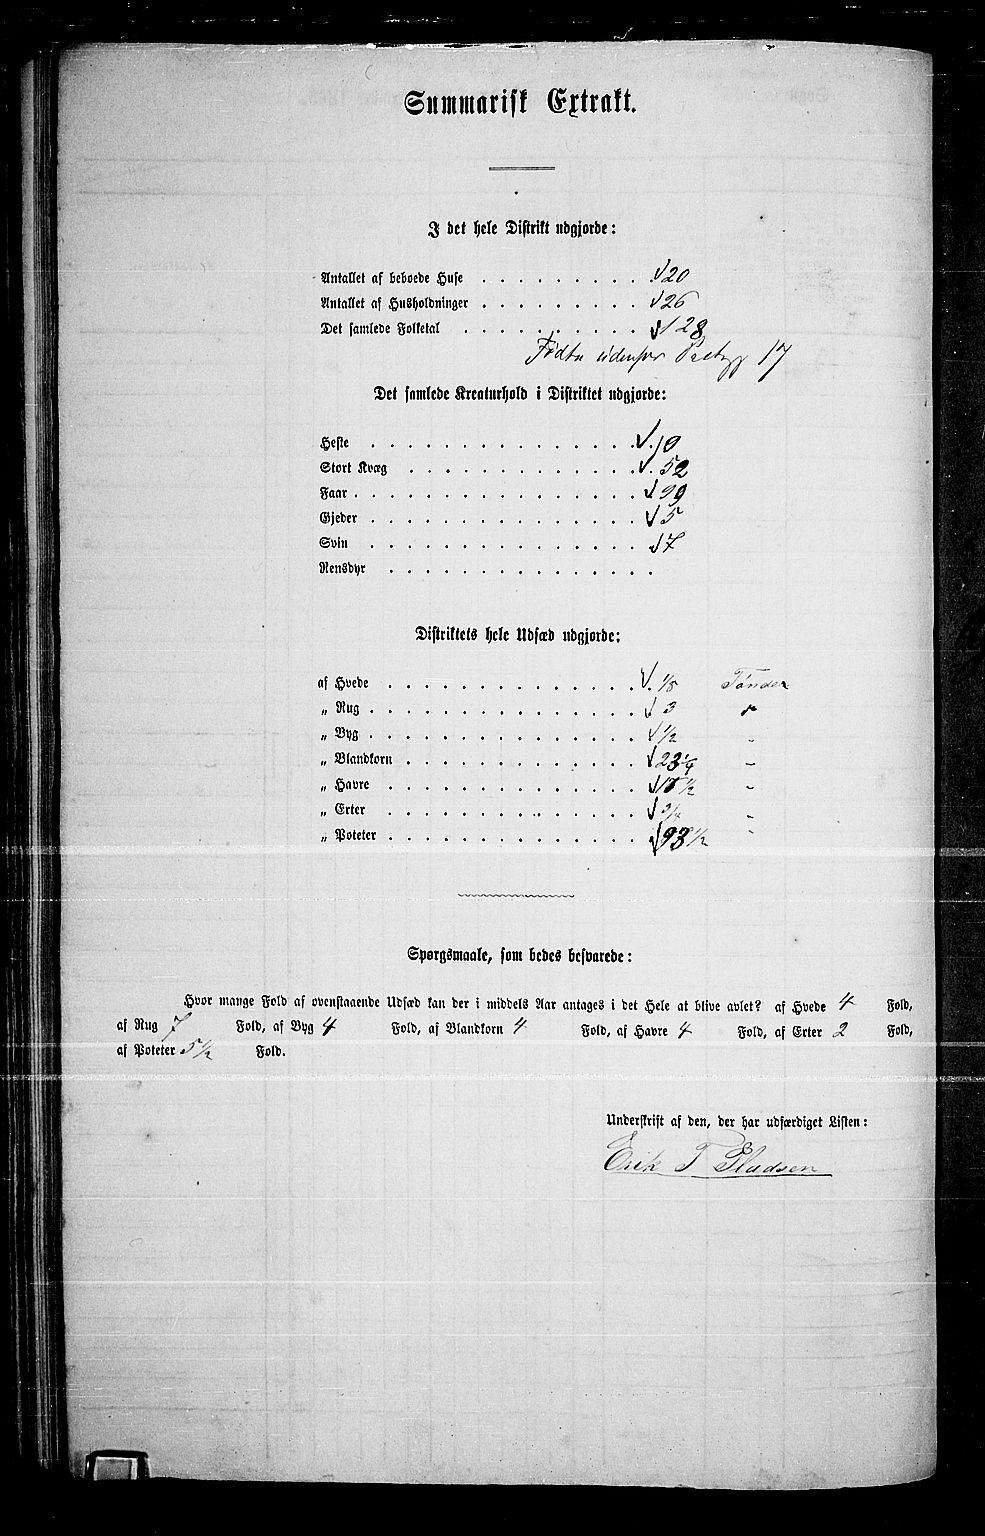 Summarisk Extrakt.
I det hele Distrikt udgjorde:
Antallet af beboede Huse . . . . . . . . . . 20
Antallet af Husholdninger . . . . . . . . . . 26
Det samlede Folketal . . . . . . . . . . 128
Fødte udenfor 17
Det samlede Kreaturhold i Distriktet udgjorde:
Heste . . . . . . . . . . . . . . . 10
Stort Kvæg . . . . . . . . . . . . . . 52
Faar . . . . . . . . . . . . . . . . 99
Gjeder . . . . . . . . . . . . . . . 5
Svin . . . . . . . . . . . . . . . 7
Rensdyr . . . . . . . . . . . . . . .
Distriktets hele Udsæd udgjorde:
af Hvede . . . . . . . . . . . . . . 1/8 Tønder
„ Rug . . . . . . . . . . . . . . . 3
„ Byg . . . . . . . . . . . . . . . 1/2 -
„ Blandkorn . . . . . . . . . . . . . 23 1/4 -
„ Havre . . . . . . . . . . . . . . 1/2 -
„ Erter . . . . . . . . . . . . . . 3/4 -
„ Poteter . . . . . . . . . . . . . . 93 1/2 -
Spørgsmaale, som bedes besvarede:
Hvor mange Fold af ovenstaaende Udsæd kan der i middels Aar antages i det Hele at blive avlet? af Hvede 4 Fold,
af Rug 7 Fold, af Byg 4 Fold, af Blandkorn 4 Fold, af Havre 4 Fold, af Erter 2 Fold,
af Poteter 5 1/2 Fold.
Underskrift af den, der har udfærdiget Listen:
Erik T Pladsen